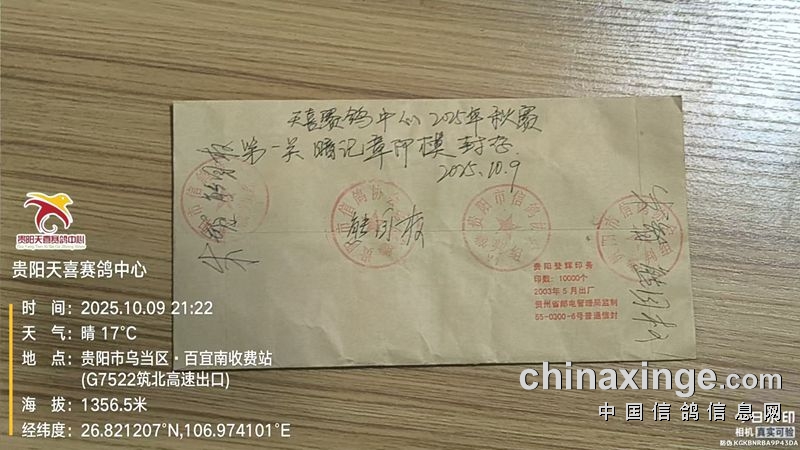 天喜赛鸽中心2025年秋赛
第一关暗记章印模封存
2025.10.9
贵阳市信鸽协会
贵阳登辉印务
印数：10000个
2003年5月出厂
贵州省邮电管理局监制
55-0300-6号普通信封
贵阳天喜赛鸽中心
贵阳天喜赛鸽中心
时 间：2025.10.09 21:22
天 气：晴 17°C
地 点：贵阳市乌当区·百宜南收费站
(G7522筑北高速出口)
海 拔：1356.5米
经纬度：26.821207°N,106.974101°E
chinaxinge.com
中国信鸽信息网
相机 真实可验
防伪 KGKBNRBA9P43DA